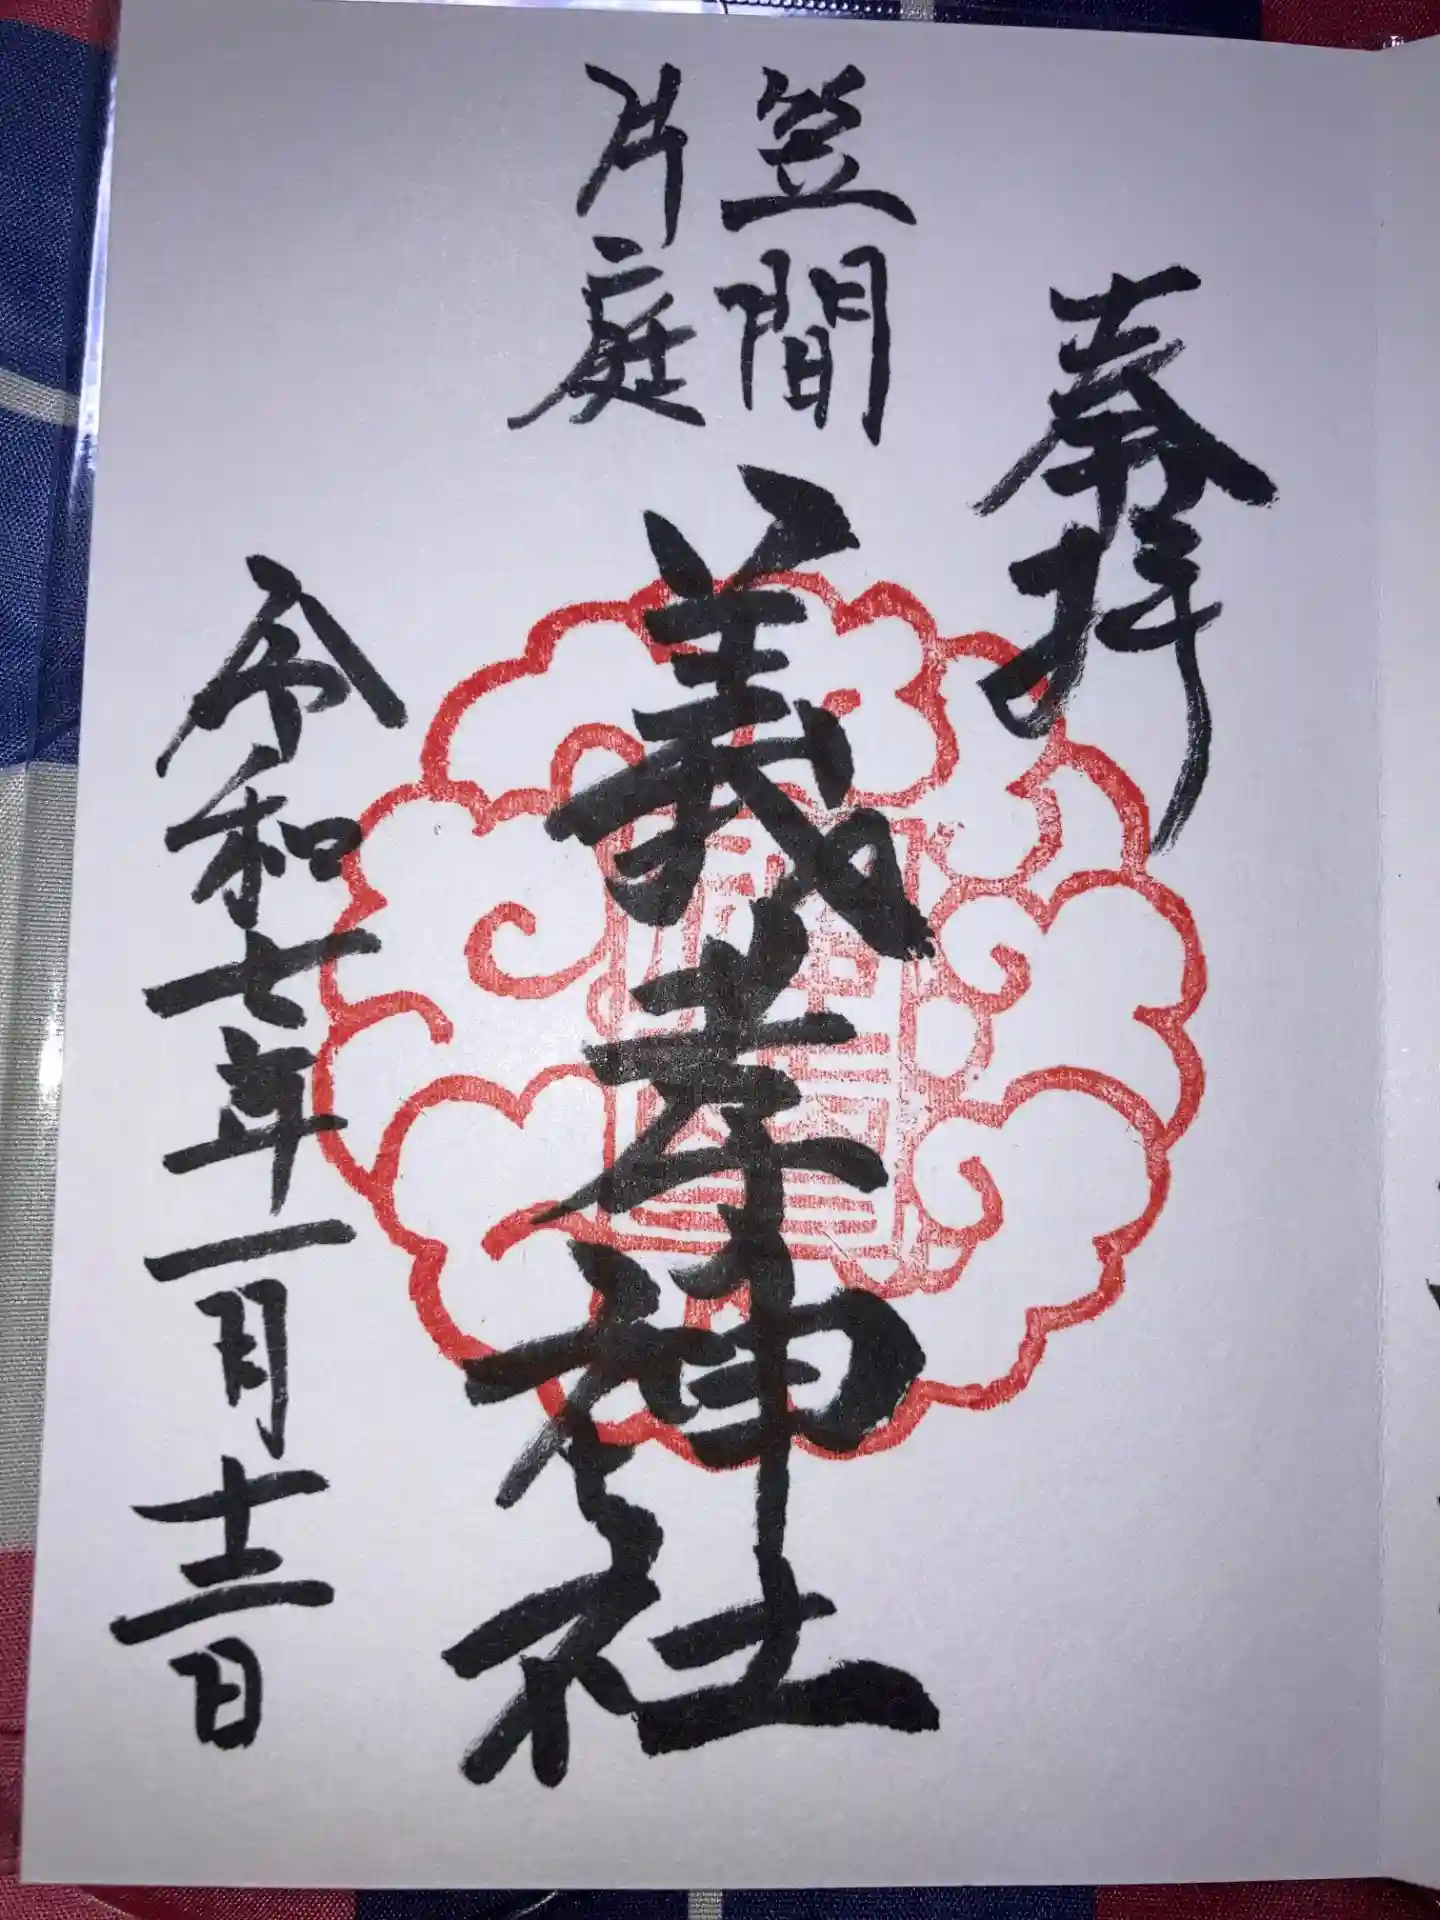 奉拝
笠間
片庭
義孝神社
令和七年一月十二日